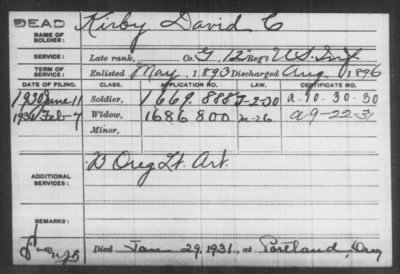 DEAD
Kirby David C
NAME OF SOLDIER:
SERVICE: Late rank, Co. G, 12" Reg't U.S. Inf
TERM OF SERVICE: Enlisted May, 1893 Discharged Aug, 1896
DATE OF FILING. CLASS. APPLICATION NO. LAW. CERTIFICATE NO.
1930 June 11 Soldier, 1669.888 6-2-30 a-90-30-30
1931 Feb-7 Widow, 1686800 a9-22-31
Minor,
ADDITIONAL SERVICES: B Oreg Lt. Art.
REMARKS:
Died Jan 29, 1931, at Portland, Oreg